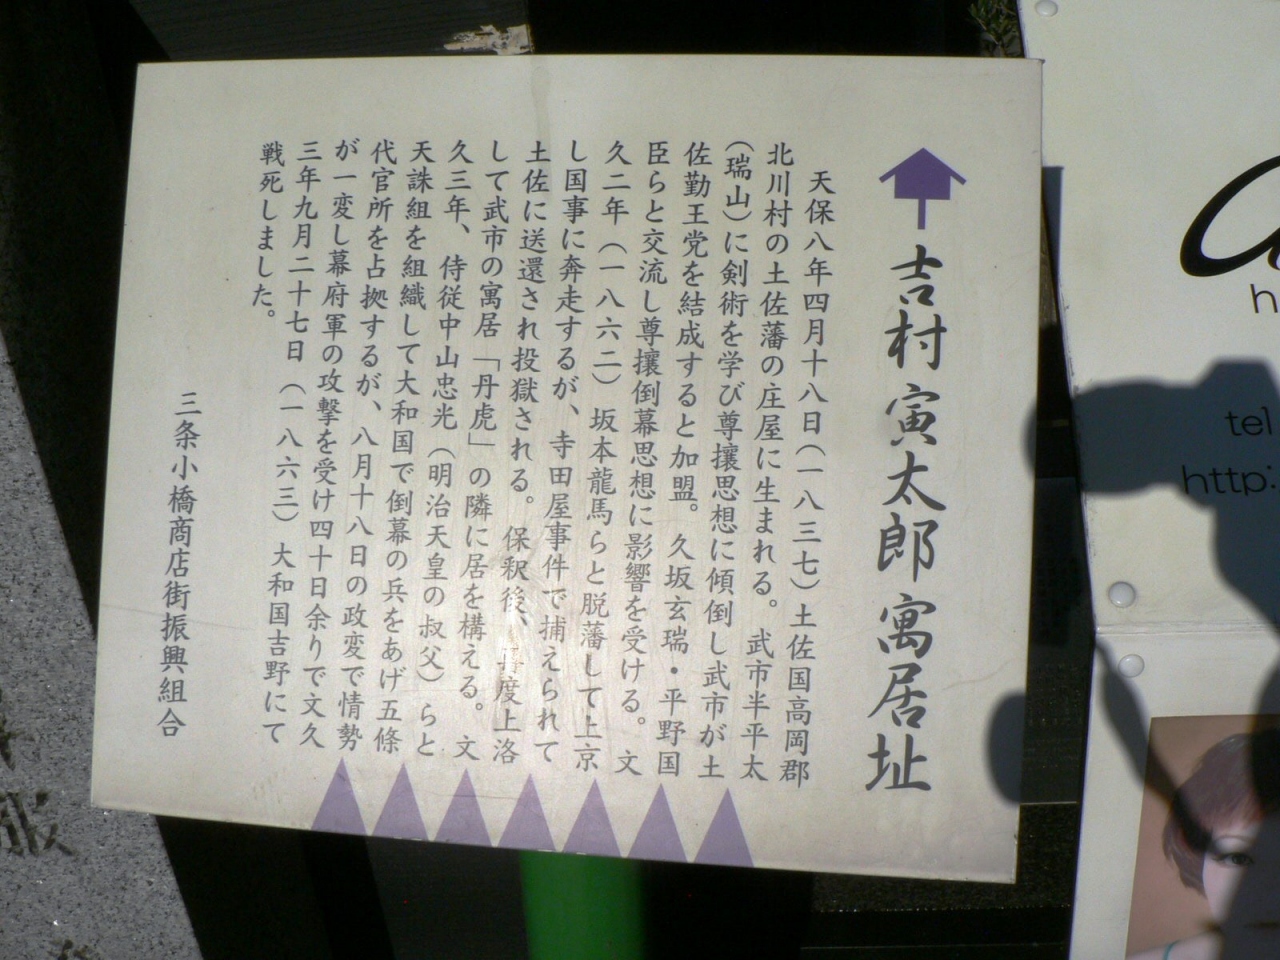 吉村寅太郎寓居址
天保八年四月十八日（一八三七）土佐国高岡郡
北川村の土佐藩の庄屋に生まれる。武市半平太
（瑞山）に剣術を学び尊攘思想に傾倒し武市が土
佐勤王党を結成すると加盟。久坂玄瑞・平野国
臣らと交流し尊攘倒幕思想に影響を受ける。文
久二年（一八六二）坂本龍馬らと脱藩して上京
し国事に奔走するが、寺田屋事件で捕えられて
土佐に送還され投獄される。保釈後、再度上洛
して武市の寓居「丹虎」の隣に居を構える。文
久三年、侍従中山忠光（明治天皇の叔父）らと
天誅組を組織して大和国で倒幕の兵をあげ五條
代官所を占拠するが、八月十八日の政変で情勢
が一変し幕府軍の攻撃を受け四十日余りで文久
三年九月二十七日（一八六三）大和国吉野にて
戦死しました。
三条小橋商店街振興組合
tel.
http: